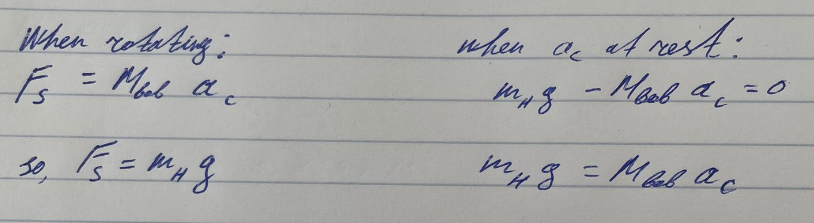 When rotating:
F_s = M_bob a_c
so, F_s = m_H g
when a_c at rest:
m_H g - M_bob a_c = 0
m_H g = M_bob a_c